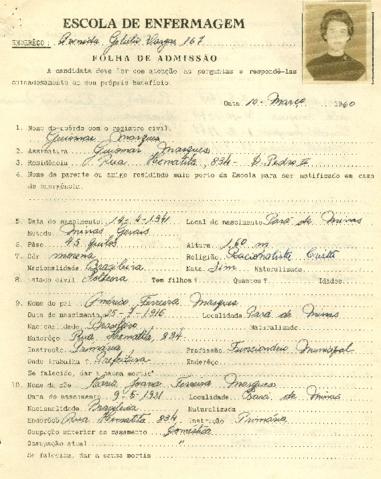 ESCOLA DE ENFERMAGEM
ENDERÊÇO: Avenida Getulio Vargas 167
FÔLHA DE ADMISSÃO
A candidata deve ler com atenção as perguntas e respondê-las
cuidadosamente ao seu próprio benefício.
Data 10 - Março 1960
1. Nome de acôrdo com o registro civil.
Guiomar Marques
2. Assinatura Guiomar Marques
3. Residência Rua Hematita, 834 - D. Pedro II
4. Nome do parente ou amigo residindo mais perto da Escola para ser notificado em caso
de emergência.
5. Data do nascimento 1941 Local do nascimento Pará de Minas
Estado Minas Gerais
6. Pêso 45 quilos Altura 1,60 m
7. Côr morena Religião Racionalista Cristã
Nacionalidade Brasileira Nata Sim Naturalizada
8. Estado civil Solteira Tem filhos? Quantos? Idades.
9. Nome do pai Américo Ferreira Marques
Data do nascimento 25-7-1916 Localidade Pará de Minas
Nacionalidade Brasileiro Naturalizado
Enderêço Rua Hematita, 834
Instrução Primária Profissão Funcionário Municipal
Onde trabalha? Prefeitura Enderêço.
Se falecido, dar a "causa mortis"
10. Nome da mãe Maria Joana Ferreira Marques
Data do nascimento 9-5-1921 Localidade Pará de Minas
Nacionalidade Brasileira Naturalizada
Enderêço Rua Hematita 834 Instrução Primária
Ocupação anterior ao casamento Doméstica
Ocupação atual "
Se falecida, dar a causa mortis